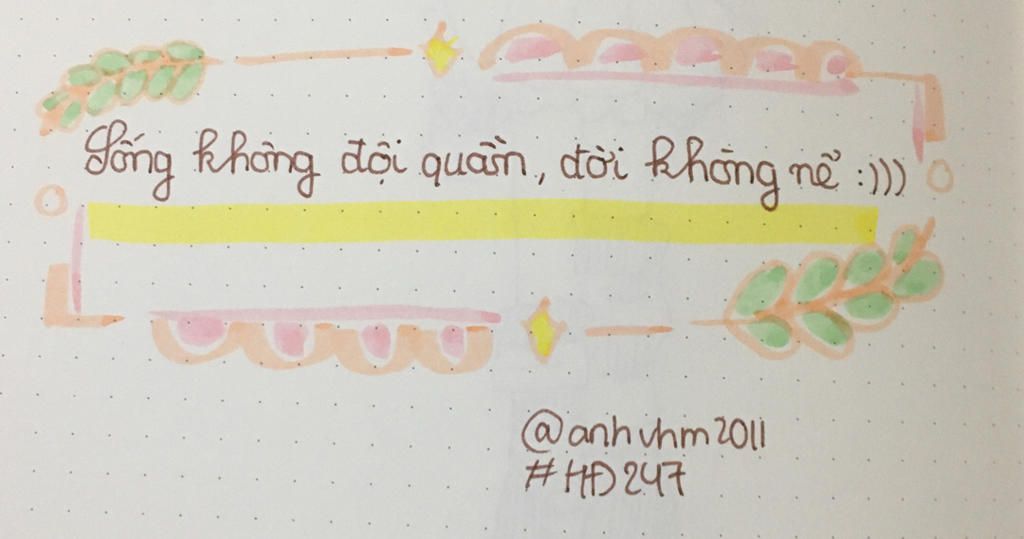 Sống không đội quần, đời không nể :)))
@anhvhm2011
#HĐ247